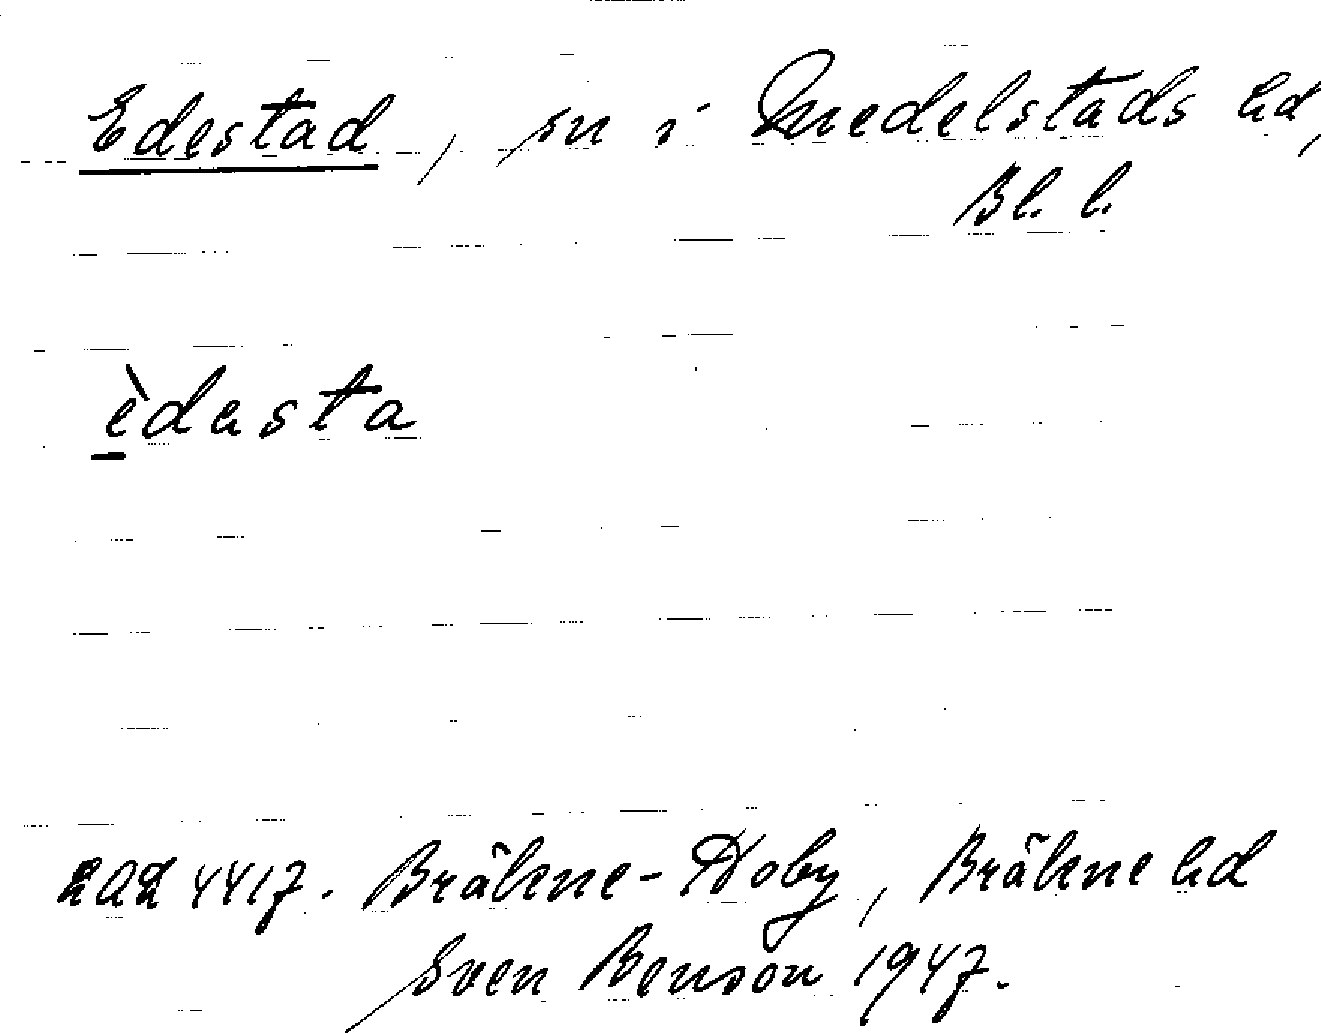 Edestad, sn i Medelstads hd,
Bl. l.
èdasta
LAL 4417. Bräkne-Hoby, Bräkne hd
Sven Benson 1947.